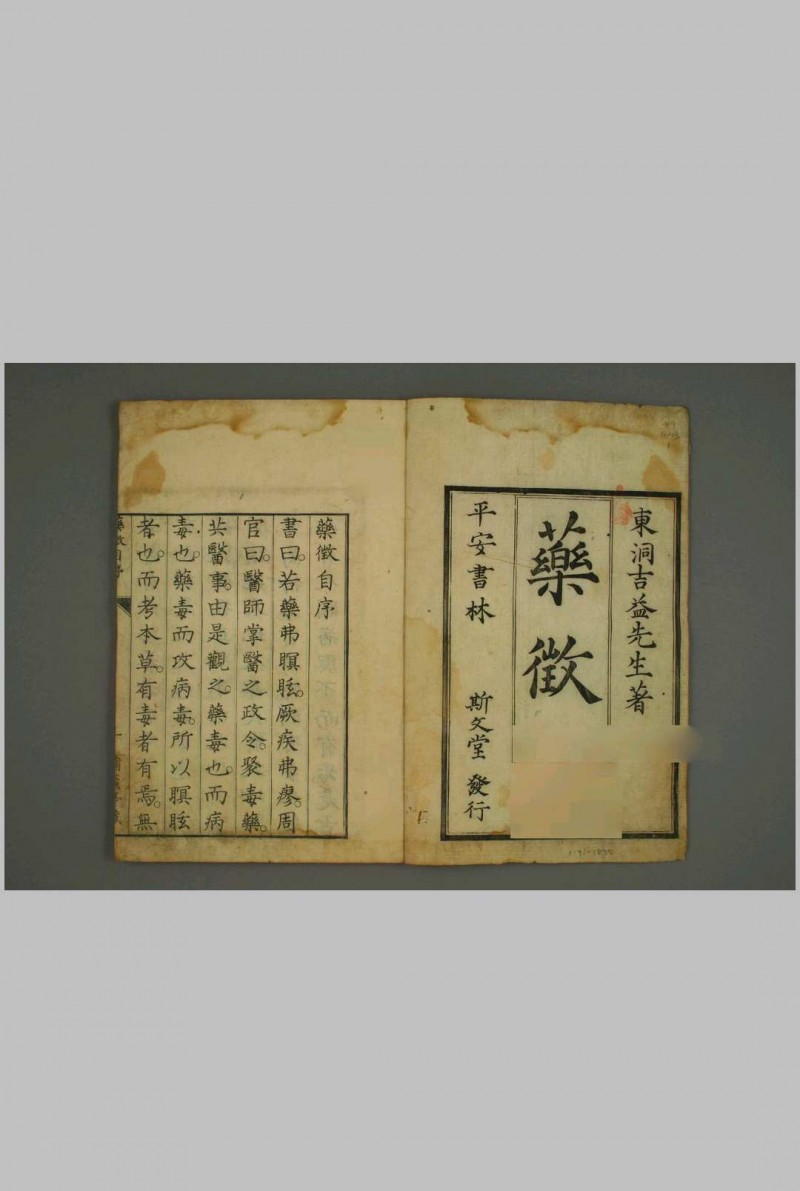 東洞吉益先生著
藥徵
平安書林 斯文堂發行
藥徵自序
書曰。若藥弗瞑眩。厥疾弗瘳。周
官曰。醫師掌醫之政令。聚毒藥。
共醫事。由是觀之。藥毒也。而病
毒也。藥毒而攻病毒。所以瞑眩
者也。而考本草。有毒者有焉。無
藥徵自序